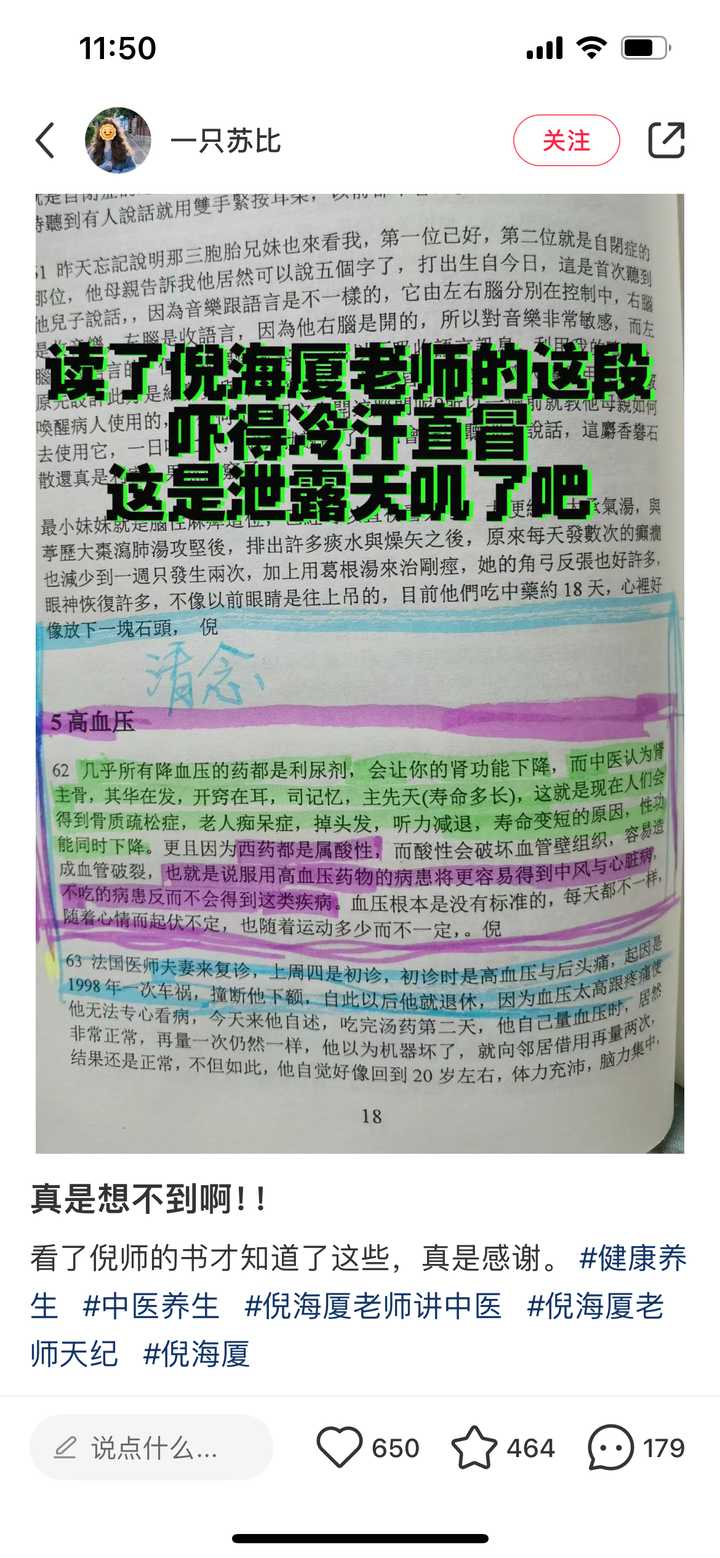 11:50
一只苏比
关注
時聽到有人說話就用雙手緊按耳朵，以前
61 昨天忘記說明那三胞胎兄妹也來看我，第一位己好，第二位就是自閉症的
那位，他母親告訴我他居然可以說五個字了，打出生自今日，這是首次聽到
他兒子說話，，因為音樂跟語言是不一樣的，它由左右腦分別在控制中，右腦
是收音樂，左腦是收語言，因為他右腦是開的，所以對音樂非常敏感，而左
读了倪海厦老师的这段
吓得冷汗直冒
这是泄露天叽了吧
喚醒病人使用的，
前就教他母親如何
去使用它，一日
說話，這麝香礬石
散還真是
最小妹妹就是腦性麻痺這位，
承氣湯，與
葶歷大棗瀉肺湯攻堅後，排出許多痰水與燥矢之後，原來每天發數次的癲癇
也減少到一週只發生兩次，加上用葛根湯來治剛痙，她的角弓反張也好許多，
眼神恢復許多，不像以前眼睛是往上吊的，目前他們吃中藥約 18 天，心裡好
像放下一塊石頭， 倪
清念、
5 高血压
62 几乎所有降血压的药都是利尿剂，会让你的肾功能下降，而中医认为肾
主骨，其华在发，开窍在耳，司记忆，主先天(寿命多长)，这就是现在人们会
得到骨质疏松症，老人痴呆症，掉头发，听力减退，寿命变短的原因，性功
能同时下降。更且因为西药都是属酸性，而酸性会破坏血管壁组织，容易造
成血管破裂，也就是说服用高血压药物的病患将更容易得到中风与心脏病，
不吃的病患反而不会得到这类疾病。血压根本是没有标准的，每天都不一样，
随着心情而起伏不定，也随着运动多少而不一定，。倪
63 法国医师夫妻来复诊，上周四是初诊，初诊时是高血压与后头痛，起因是
1998 年一次车祸，撞断他下额，自此以后他就退休，因为血压太高跟疼痛使
他无法专心看病，今天来他自述，吃完汤药第二天，他自己量血压时，居然
非常正常，再量一次仍然一样，他以为机器坏了，就向邻居借用再量两次，
结果还是正常，不但如此，他自觉好像回到 20 岁左右，体力充沛，脑力集中，
18
真是想不到啊！！
看了倪师的书才知道了这些，真是感谢。 #健康养
生 #中医养生 #倪海厦老师讲中医 #倪海厦老
师天纪 #倪海厦
说点什么...
650
464
179